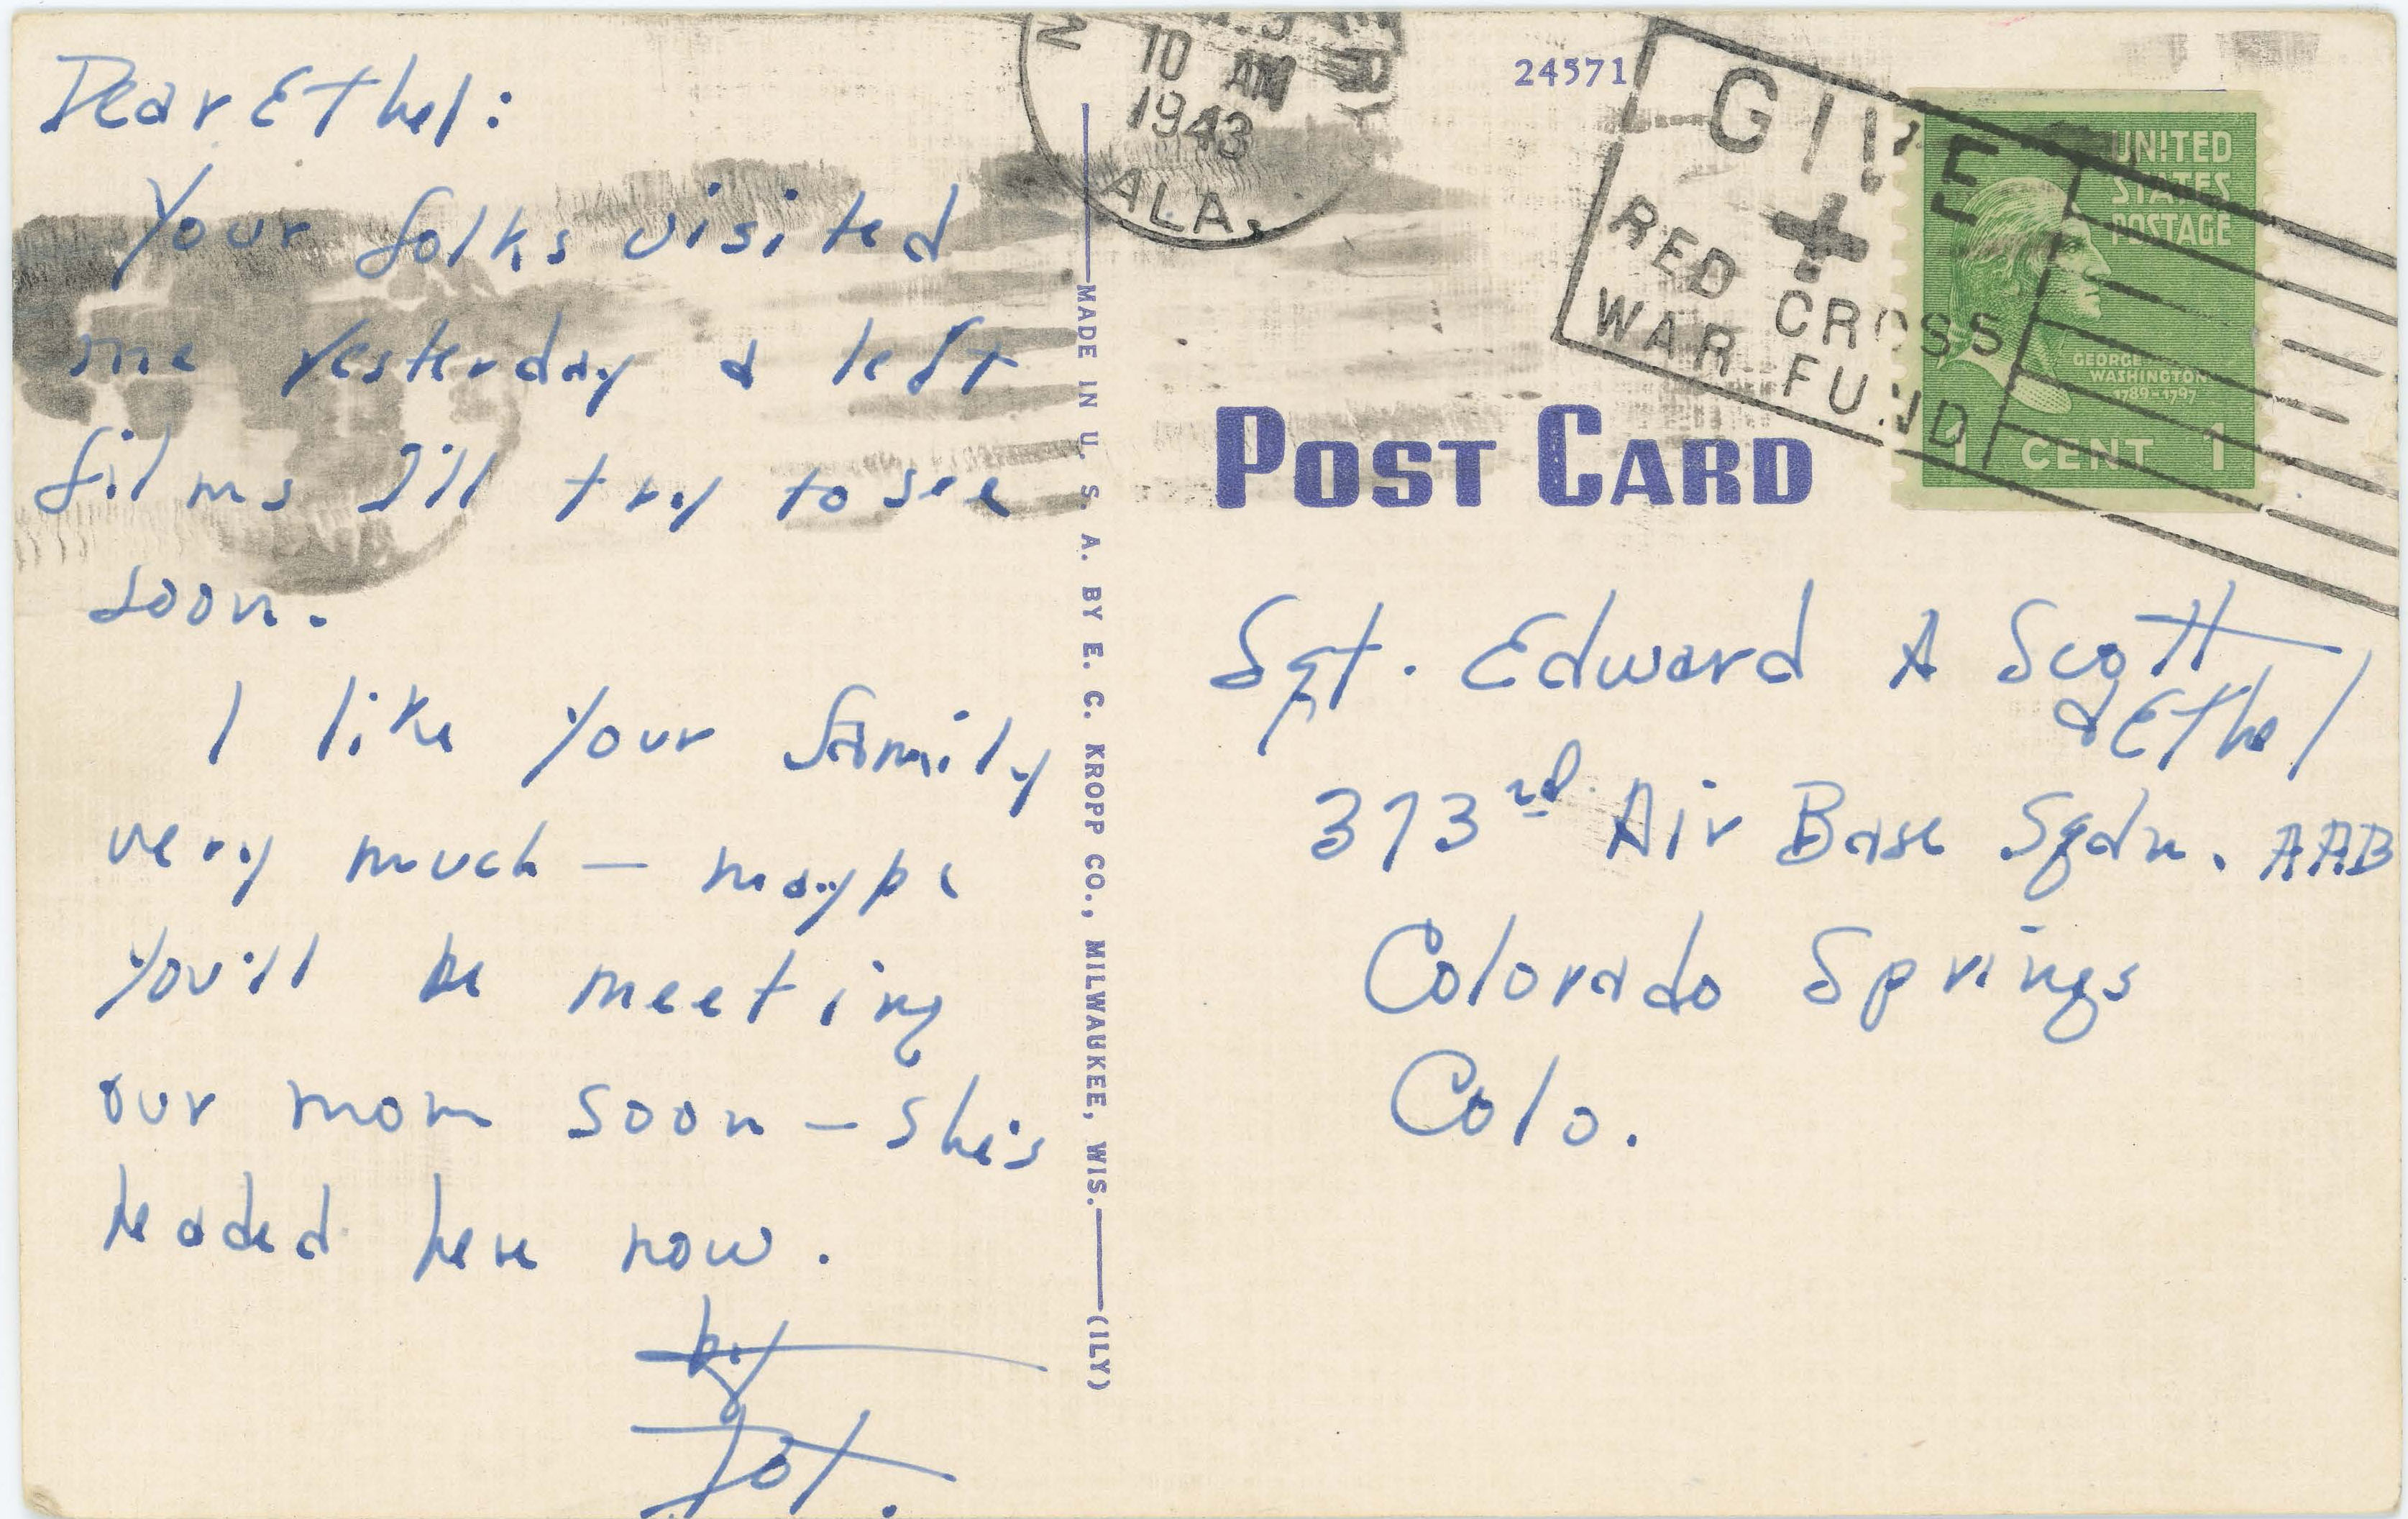 Dear Ethel:
Your folks visited
me yesterday & left
films I'll try to see
soon.
I like your family
very much – maybe
you'll be meeting
our mom soon – she's
headed here now.
by
Jot.
MADE IN U. S. A. BY E. C. KROPP CO., MILWAUKEE, WIS. (ILY)
10 AM
1943
ALA.
24571
GIVE
RED CROSS
WAR FUND
UNITED
STATES
POSTAGE
GEORGE
WASHINGTON
1789-1797
1 CENT 1
POST CARD
Sgt. Edward A Scott
& Ethel
373rd Air Base Sqdn. AAB
Colorado Springs
Colo.